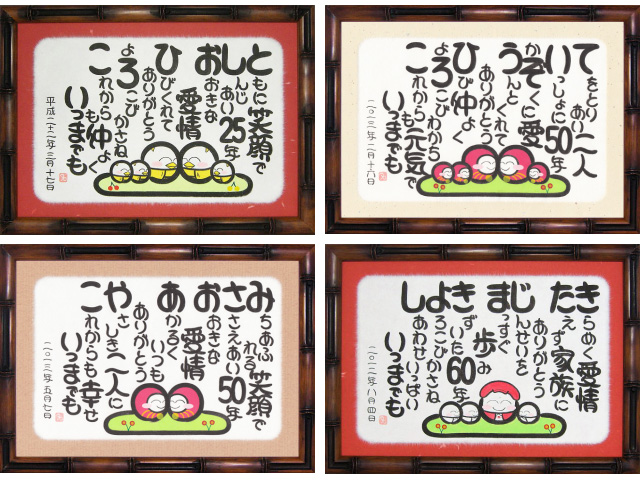 ともに笑顔で
しんじあい25年
おおきな
愛情
ひびくれて
ありがとう
よろこびかさね
これからも仲よく
いつまでも
平成二十二年三月十七日
てをとりあい二人
いっしょに50年
かぞくに愛
うんとくれて
ありがとう
ひび仲よく
よろこびわかち
これからも元気で
いつまでも
二〇一三年二月十六日
みちあふれる笑顔で
ささえあい50年
おおきな
愛情
あかるくいつも
ありがとう
やさしき二人に
これからも幸せ
いつまでも
二〇一三年五月七日
きらめく愛情
たえず家族に
ありがとう
じんせいを
まっすぐ歩み
きずいた60年
よろこびかさね
しあわせいっぱい
いつまでも
二〇一二年八月四日